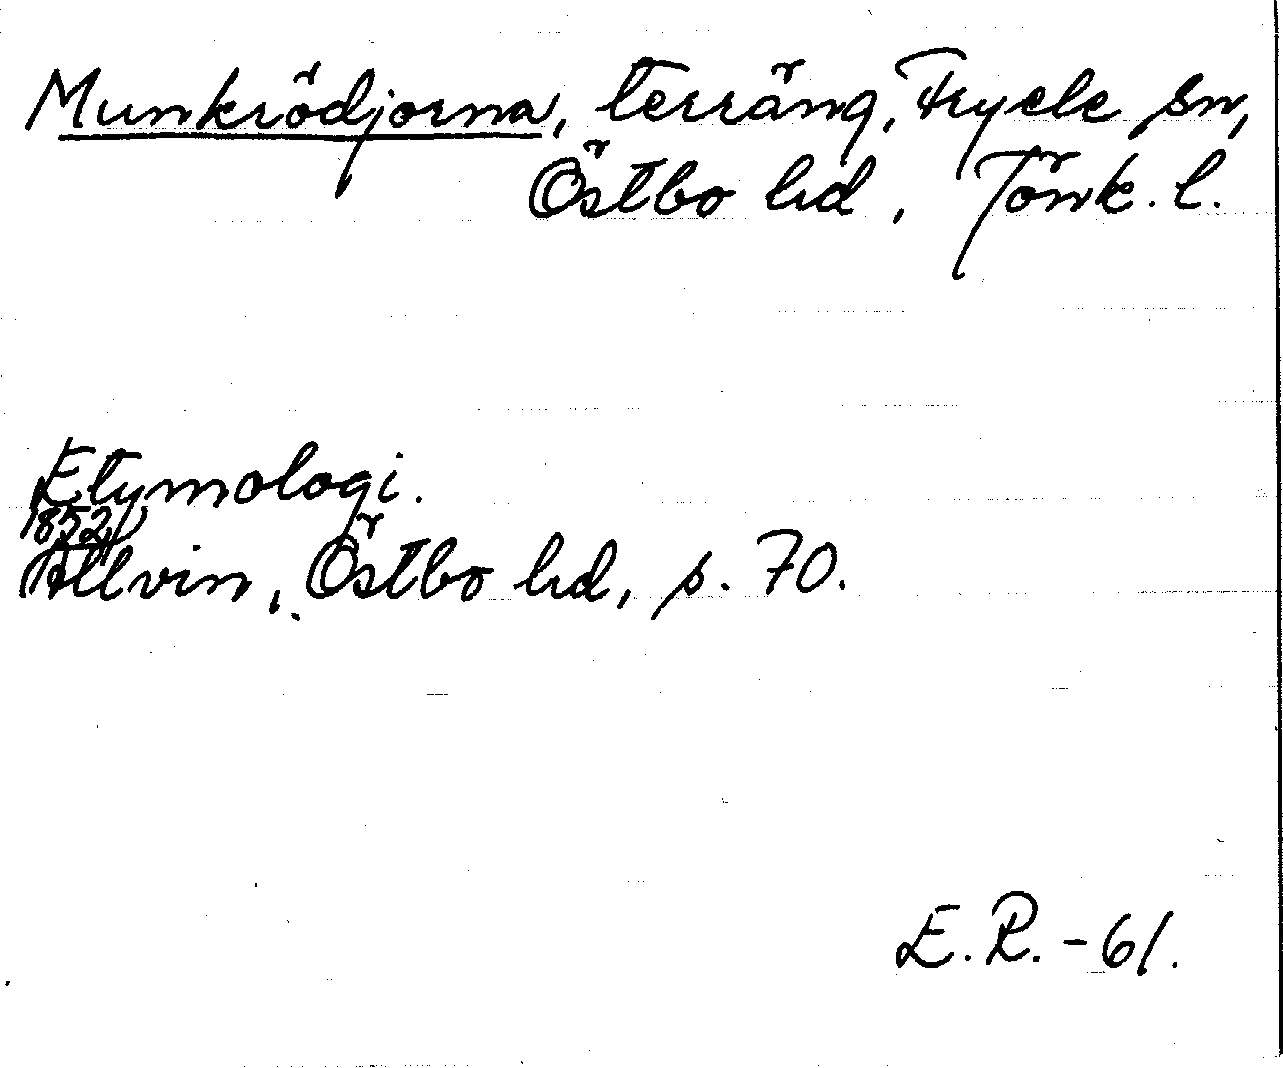 Munkrödjorna, terräng, Fryele sn,
Östbo hd, Jönk. l.
Etymologi.
1852
Allvin, Östbo hd, s. 70.
E. R. - 61.